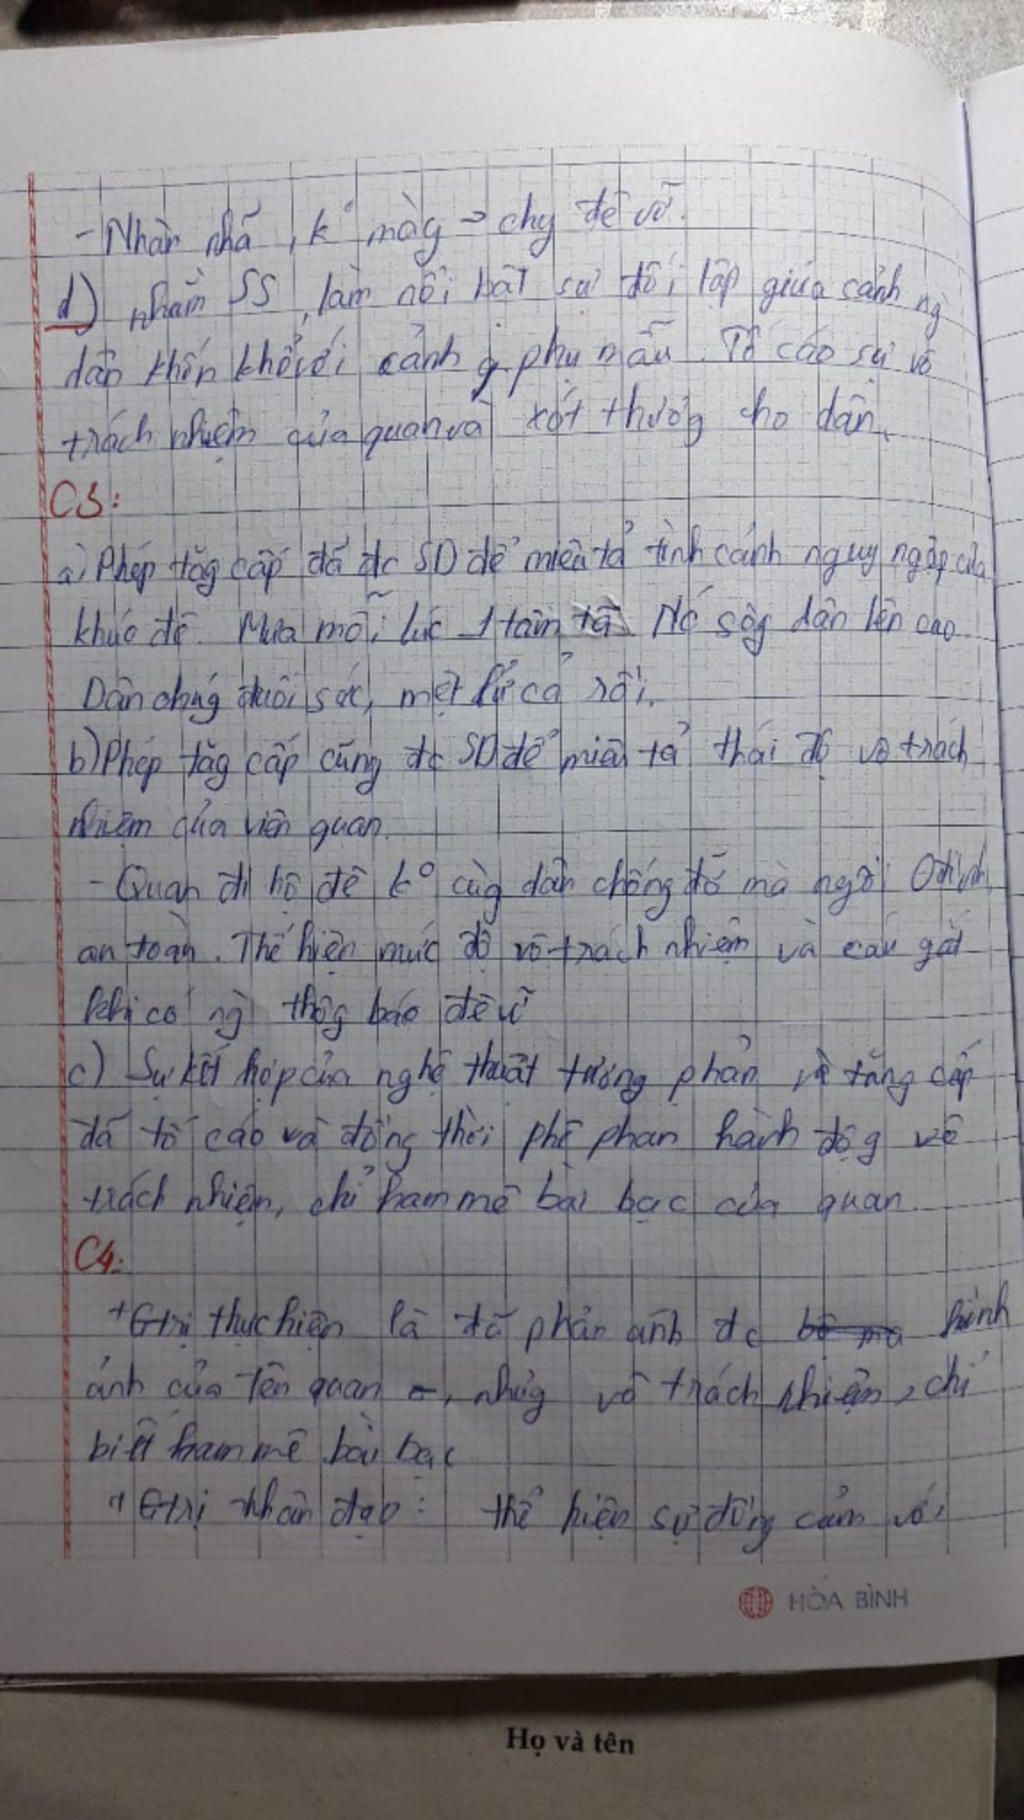 - Nhàn nhã, k° màg → chy đê vỡ.
d) nhằm SS, làm nổi bật sự đối lập giữa cảnh ng
dân khốn khổ với cảnh q phụ mẫu. Tố cáo sự vô
trách nhiệm của quan và xót thươg cho dân.
C3:
a) Phép tăg cấp đã đc SD để miêu tả tình cảnh nguy ngập của
khúc đê. Mưa mỗi lúc 1 tầm tã. Nc sôg dân lên cao
Dân chúg đuối sức, mệt lử cả rồi.
b) Phép tăg cấp cũng đc SD để miêu tả thái độ vô trách
nhiệm của viên quan.
- Quan đi hộ đê k° cùg dân chống đỡ mà ngồi Ở đình
an toàn. Thể hiện mức độ vô trách nhiệm và cáu gắt
khi có ng thôg báo đê vỡ
c) Sự kết hợp của nghệ thuật tương phản và tăng cấp
đã tố cáo và đồng thời phê phan hành độg vô
trách nhiệm, chỉ ham mê bài bạc của quan.
C4:
+ Gtrị thực hiện là đã phản ánh đc hình
ảnh của tên quan, nhữg vô trách nhiệm, chỉ
biết ham mê bài bạc
+ Gtrị nhân đạo: thể hiện sự đồng cảm với
HÒA BÌNH
Họ và tên